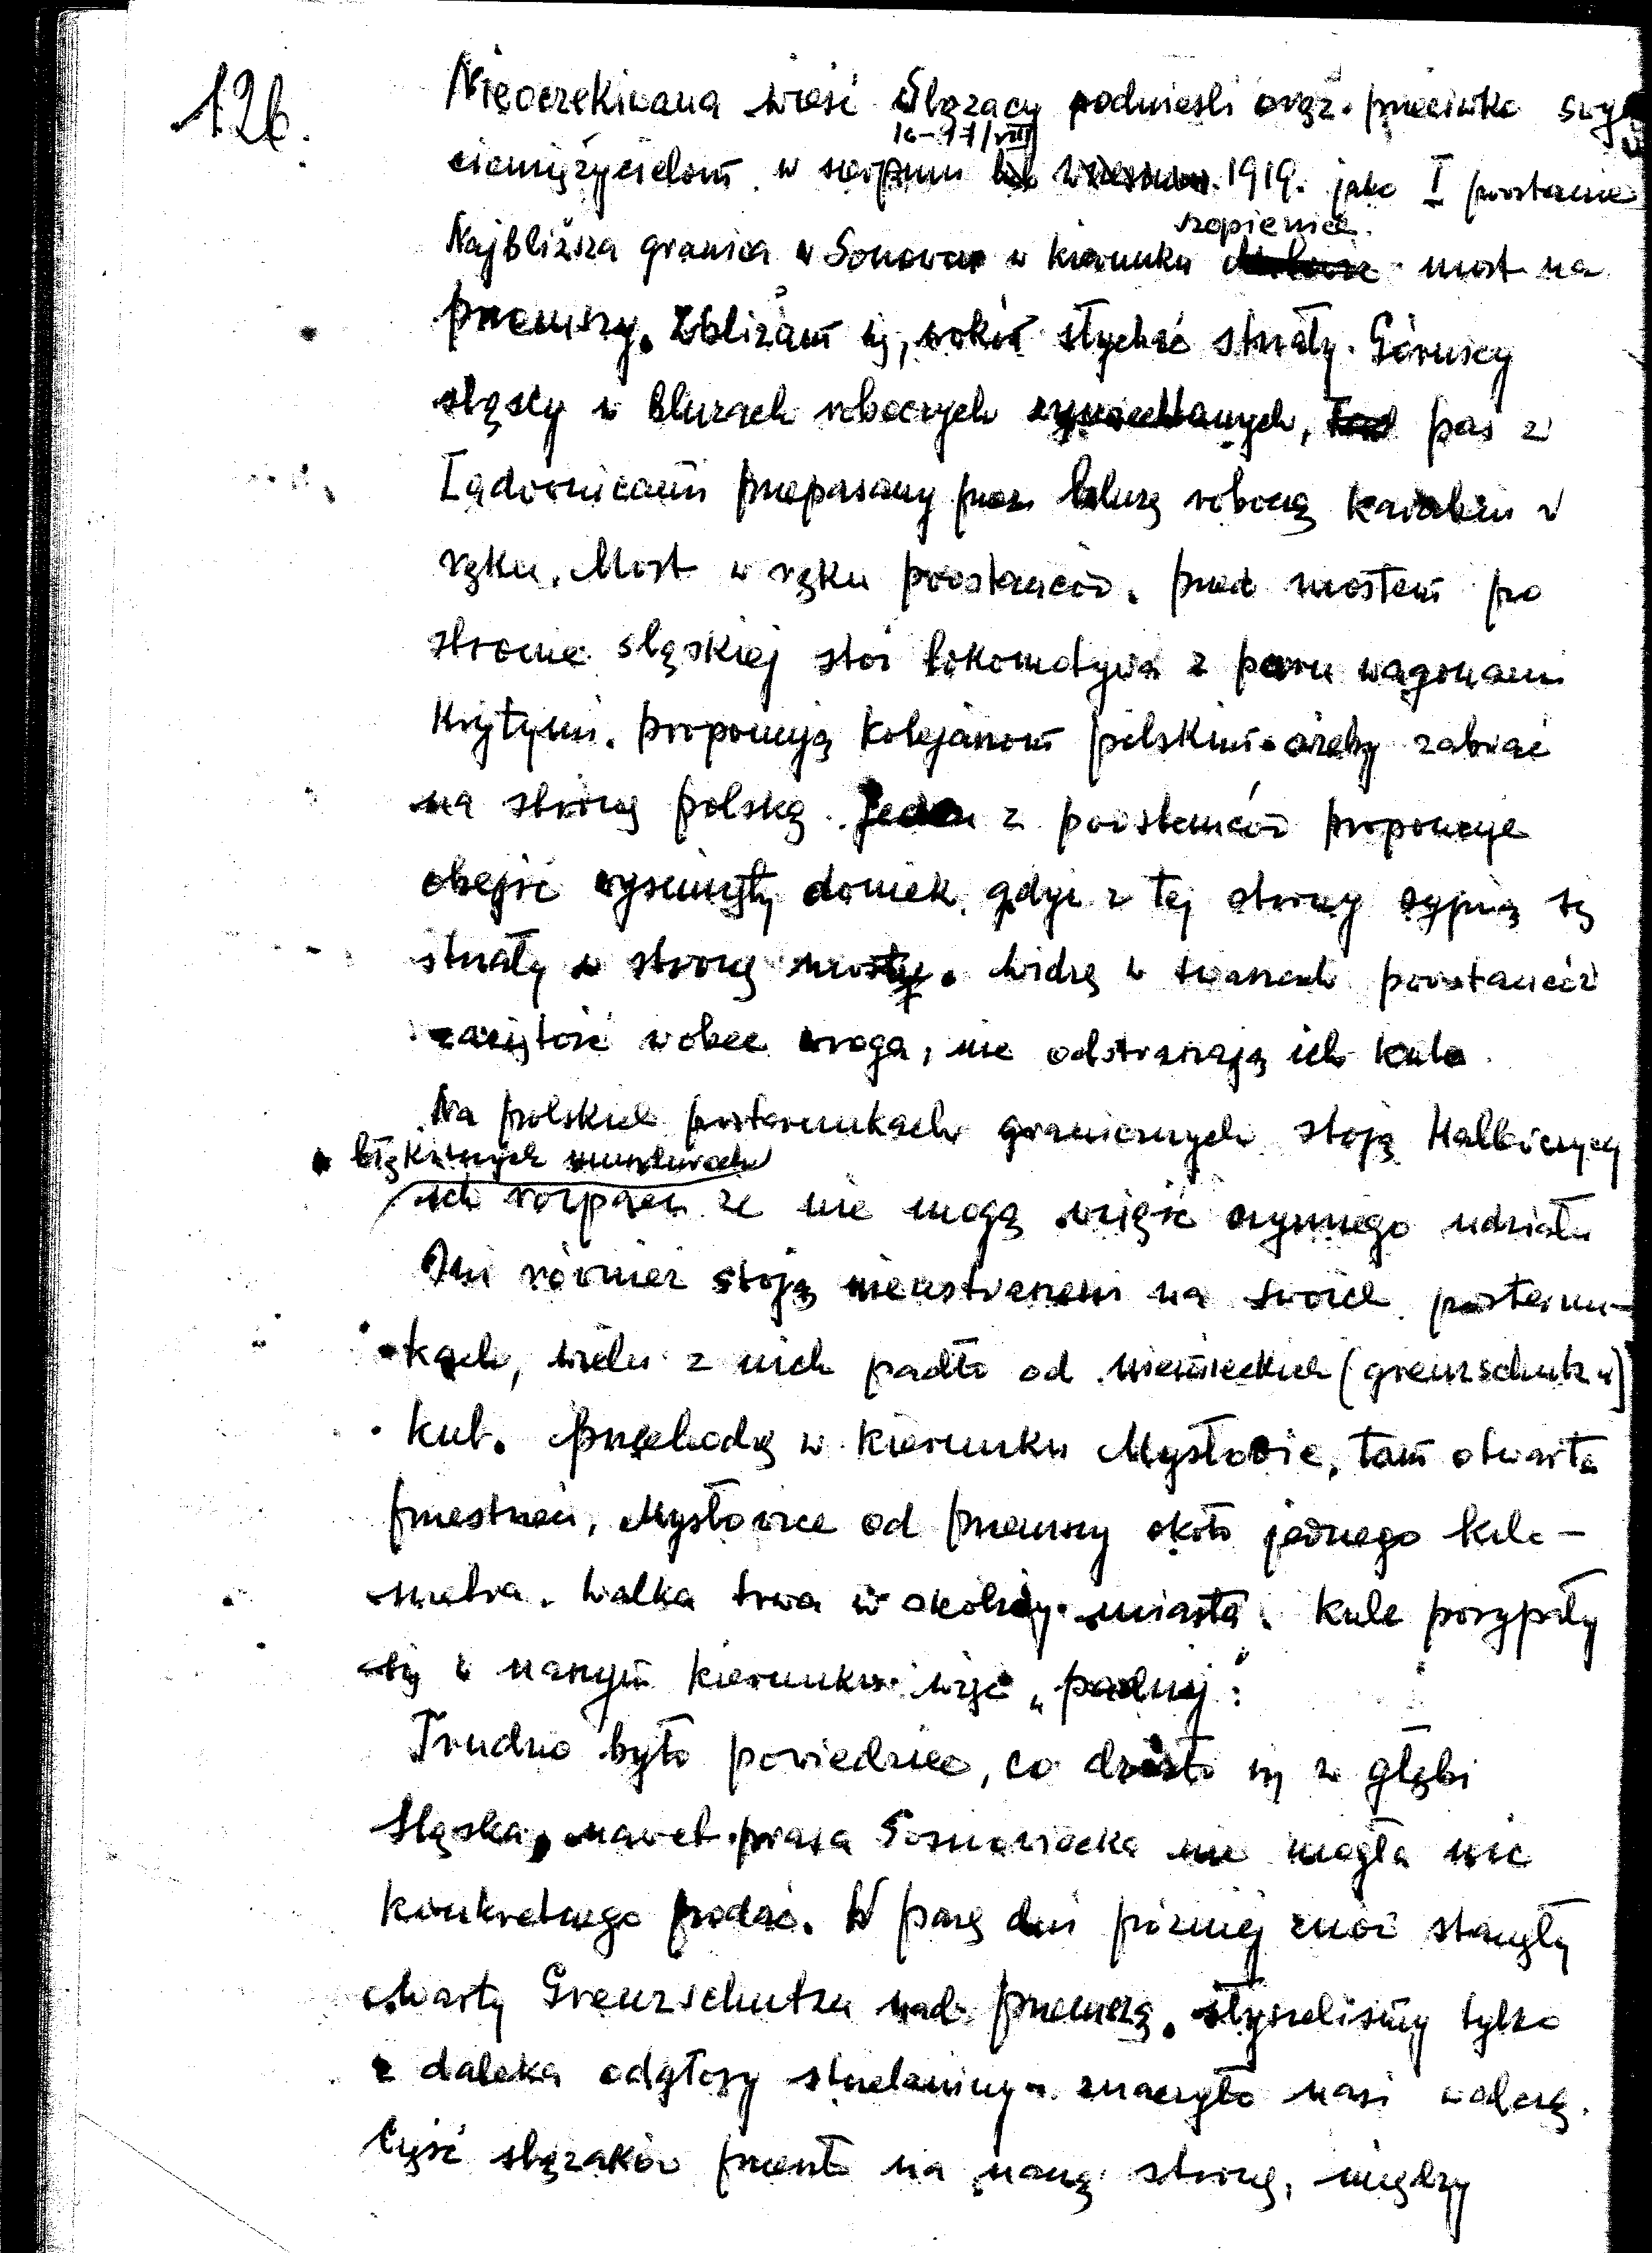 126.
Nieoczekiwana wieść Ślązacy podnieśli oręż. przeciwko swym
16-17/VIII
ciemiężycielom w sierpniu 1919. jako I powstanie
szopienice.
Najbliższa granica w Sosnowcu w kierunku most na
przemszy. Zbliżam się, wokół słychać strzały. Górnicy
śląscy w bluzach roboczych, pas z
Ładownicami przepasany przez bluzę roboczą karabin w
ręku. Most w ręku powstańców. przed mostem po
stronie śląskiej stoi lokomotywa z paru wagonami
Krytymi. proponują kolejarzom polskim ażeby zabrać
na stronę polską. Jeden z powstańców proponuje
obejść wysunięty domek, gdyż z tej strony sypią się
strzały w stronę mostu. Widzę w twarzach powstańców
zaciętość wobec wroga, nie odstraszają ich kule.
Na polskich posterunkach granicznych stoją Hallerczycy
w błękitnych mundurach
ich rozpacz że nie mogą wziąść czynnego udziału
Oni również stoją nieustraszeni na swoich posterun-
kach, wielu z nich padło od niemieckich (grenzschutzu)
kul. Przechodzę w kierunku Mysłowic, tam otwarta
przestrzeń, Mysłowice od przemszy około jednego kilo-
metra. Walka trwa w okolicy miasta. Kule posypały
się w naszym kierunku więc „padnij".
Trudno było powiedzieć, co działo się w głębi
Śląska, nawet prasa Sosnowiecka nie mogła nic
konkretnego podać. W parę dni później znów stanęły
warty Grenzschutzu nad przemszą. słyszeliśmy tylko
z daleka odgłosy strzelaniny znaczyło nasi walczą.
Część ślązaków przeszło na naszą stronę, między